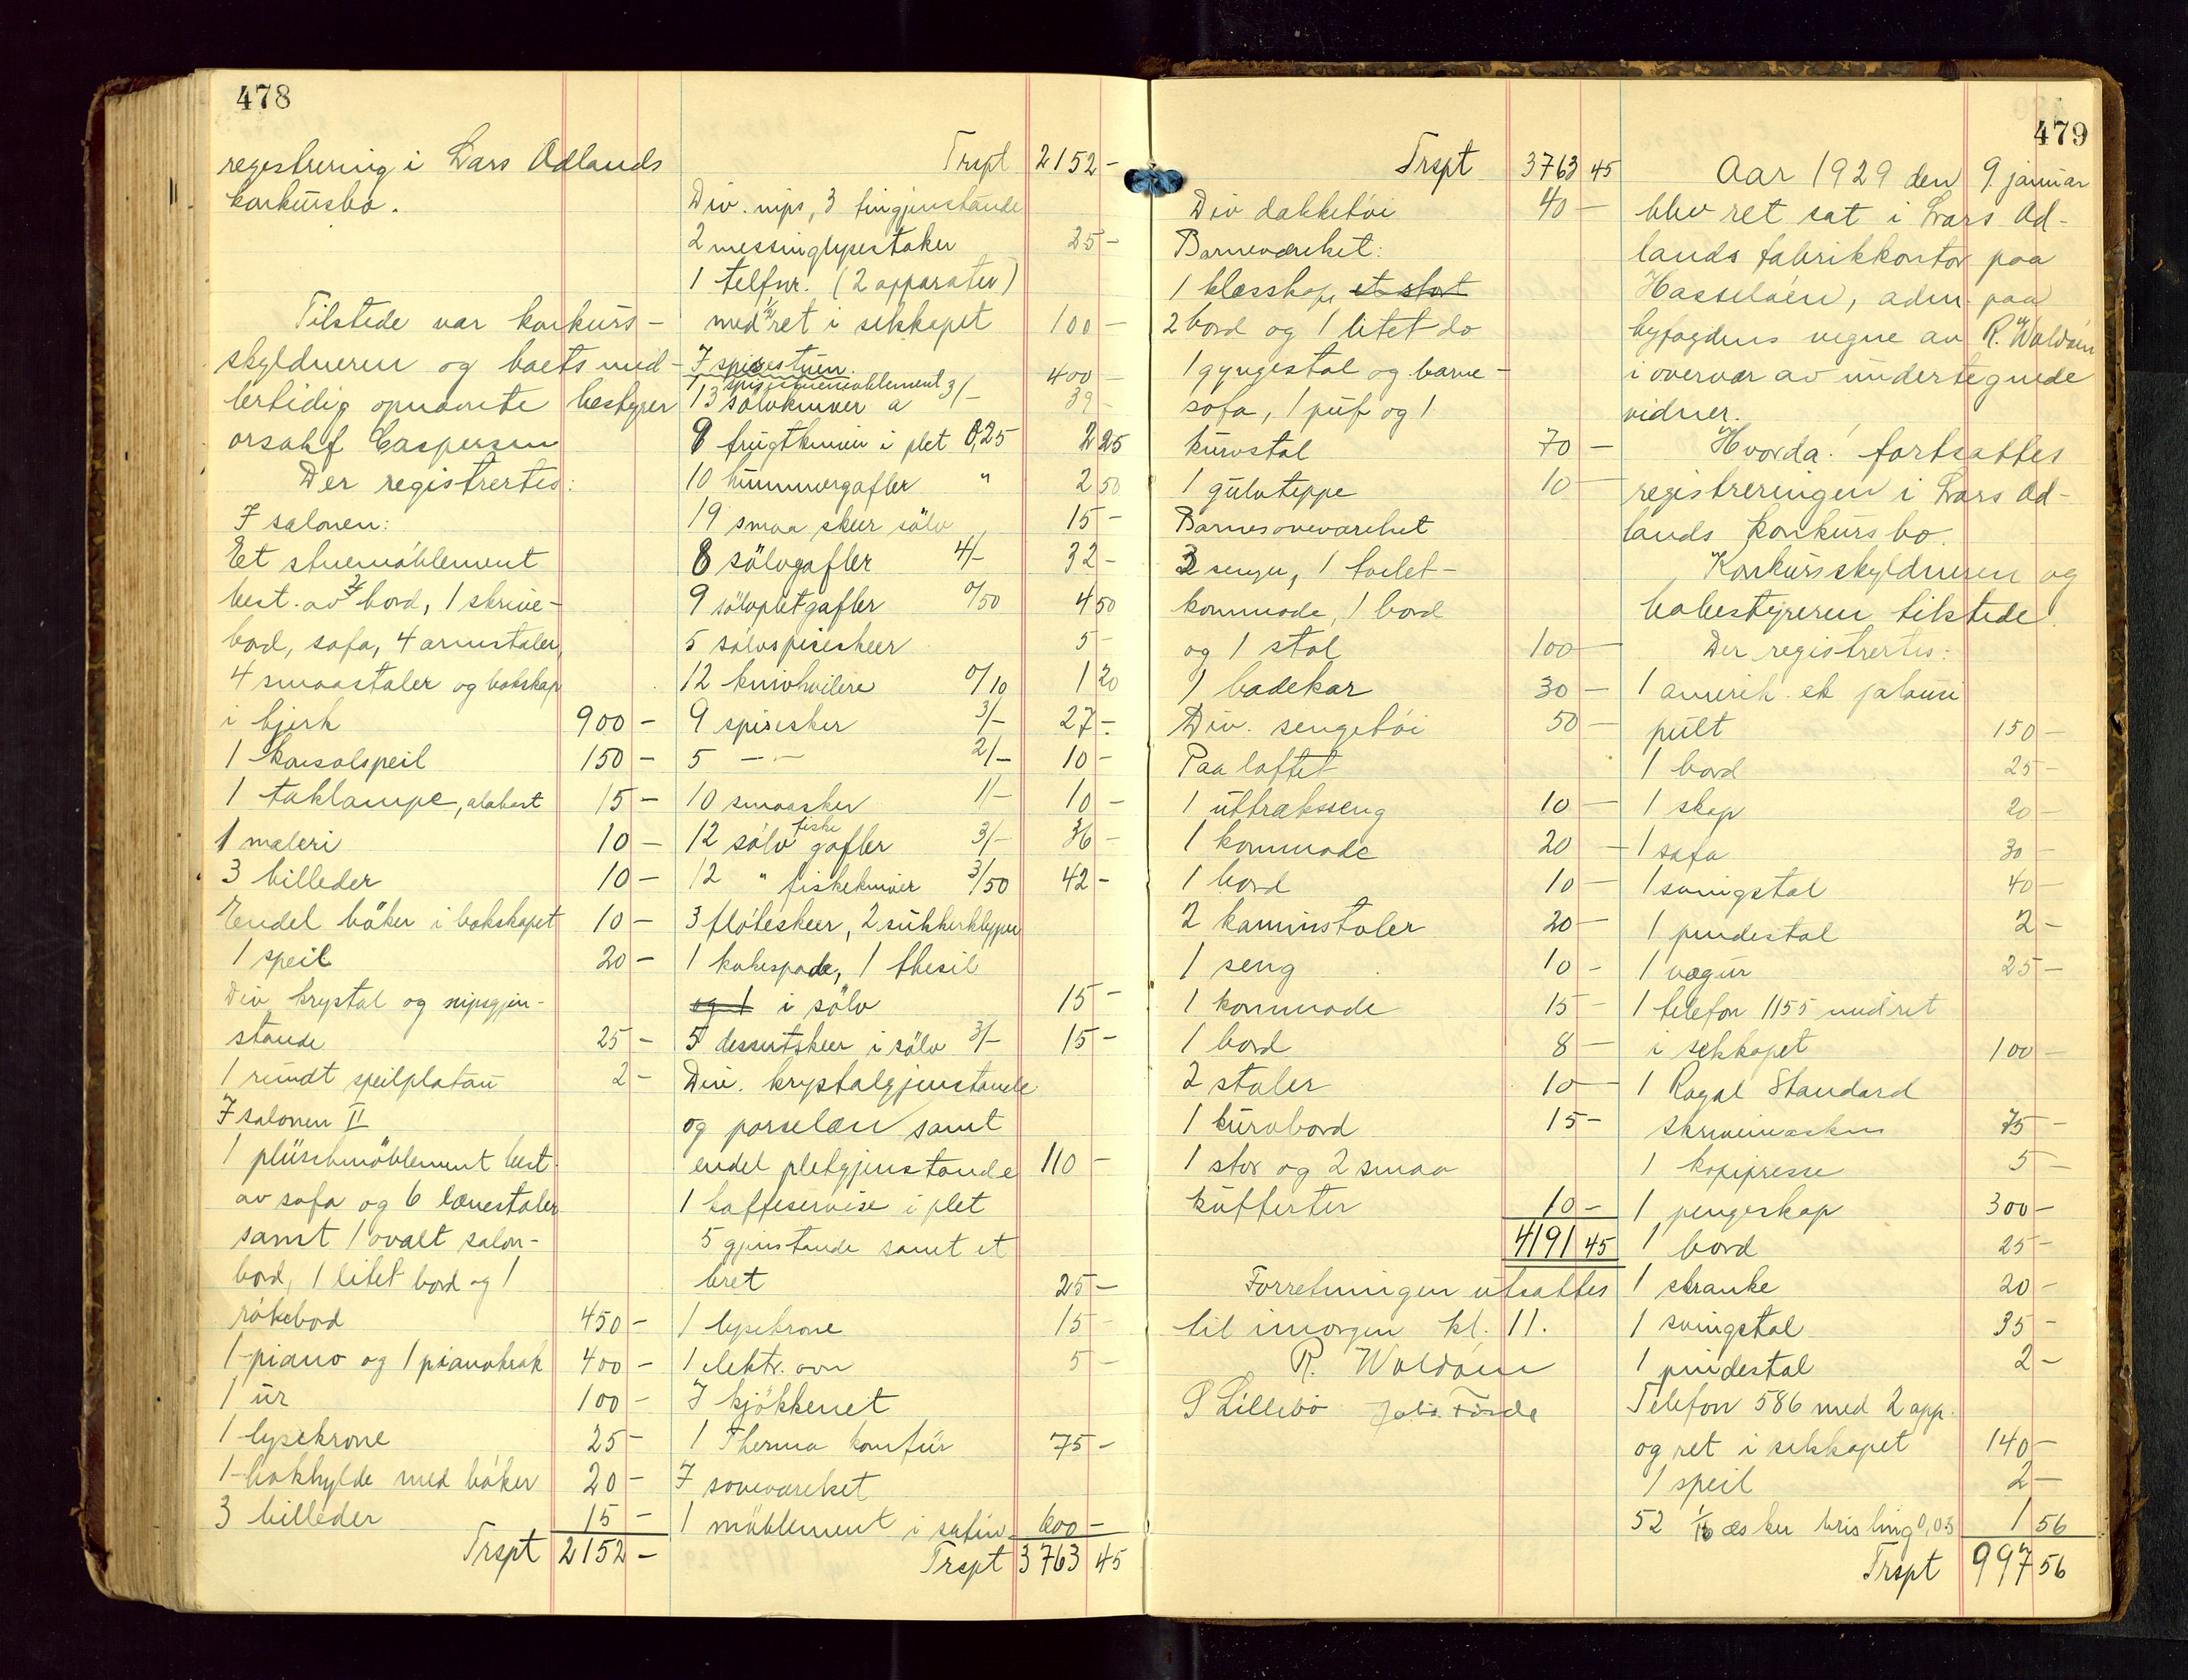 478
registrering i Lars Ødlands
konkursbo.
Tilstede var konkurs-
skyldneren og boets mid-
lertidig opnævnte bestyrer
orsakf Caspersen
Der registrertes:
I salonen:
Et stuemöblement
best. av 2 bord, 1 skrive-
bord, sofa, 4 armstoler,
4 smaastoler og bokskap
i bjerk 900 -
1 konsolspeil 150 -
1 taklampe, alabast 15 -
1 maleri 10 -
3 billeder 10 -
Endel böker i bokskapet 10 -
1 speil 20 -
Div krystal og nipsgjen-
stande 25 -
1 rundt speilplatau 2 -
I salonen II
1 plüschmöblement best.
av sofa og 6 lænestoler
samt 1 ovalt salon-
bord, 1 litet bord og 1
rökebord 450 -
1 piano og 1 pianokrak 400 -
1 ur 100 -
1 lysekrone 25 -
1 bokhylde med böker 20 -
3 billeder 15 -
Trspt 2152 -
Trspt 2152 -
Div. nips, 3 tingjenstande
2 messinglysestaker 25 -
1 telfnr. (2 apparater)
med ret i selskapet 100 -
I spisestuen.
1 spisestuemöblement 400 -
13 sölvkniver a 3/- 39 -
9 frugtkniver i plet 0,25 2 25
10 hummergafler " 2 50
19 smaa skeer sölv 15 -
8 sölvgafler 4/- 32 -
9 sölvpletgafler 0/50 4 50
5 sölvspiseskeer 5 -
12 knivhvilere 0/10 1 20
9 spiseskeer 3/- 27 -
5 -"- 2/- 10 -
10 smaaskeer 1/- 10 -
12 sölv fiske gafler 3/- 36 -
12 " fiskekniver 3/50 42 -
3 flöteskeer, 2 sukkerklyper
1 kakespade, 1 thesil
og 1 i sölv 15 -
5 dessertskeer i sölv 3/- 15 -
Div. krystalgjenstande
og porselæn samt
endel pletgjenstande 110 -
1 kaffeservise i plet
5 gjenstande samt et
bret 25 -
1 lysekrone 15 -
1 elektr. ovn 5 -
I kjökkenet
1 Therma komfür 75 -
I soveværelset
1 möblement i satin 600 -
Trspt 3763 45
Trspt 3763 45
Div dækketöi 40 -
Barneværelset:
1 klæsskap et stort
2 bord og 1 litet do
1 gyngestol og barne-
sofa, 1 puf og 1
kurvstol 70 -
1 gulvteppe 10 -
Barnesoveværelset
3 senger, 1 toilet-
kommode, 1 bord
og 1 stol 100 -
1 badekar 30 -
Div. sengetöi 50 -
Paa loftet
1 uttræksseng 10 -
1 kommode 20 -
1 bord 10 -
2 kaminstoler 20 -
1 seng 10 -
1 kommode 15 -
1 bord 8 -
2 stoler 10 -
1 kurvbord 15 -
1 stor og 2 smaa
kufferter 10 -
4191 45
Forretningen utsattes
til imorgen kl. 11.
R. Waldöen
S Lillebö
479
Aar 1929 den 9. januar
blev ret sat i Lars Ød-
lands fabrikkontor paa
Hasseløen, adm. paa
byfogdens vegne av R. Waldöen
i overvær av undertegnede
vidner.
Hvorda! fortsattes
registreringen i Lars Ød-
lands konkursbo.
Konkursskyldneren og
bobestyreren tilstede.
Der registrertes:
1 amerik. ek jalousi
pult 150 -
1 bord 25 -
1 skap 20 -
1 sofa 30 -
1 svingstol 40 -
1 pindestol 2 -
1 vægur 25 -
1 telefon 1155 med ret
i selskapet 100 -
1 Rogal Standard
skrivemaskin 75 -
1 kopipresse 5 -
1 pengeskap 300 -
1 bord 25 -
1 skranke 20 -
1 svingstol 35 -
1 pindestol 2 -
Telefon 586 med 2 app.
og ret i selskapet 140 -
1 speil 2 -
52 1/16 æsker brisling 0,03 1 56
Trspt 997 56